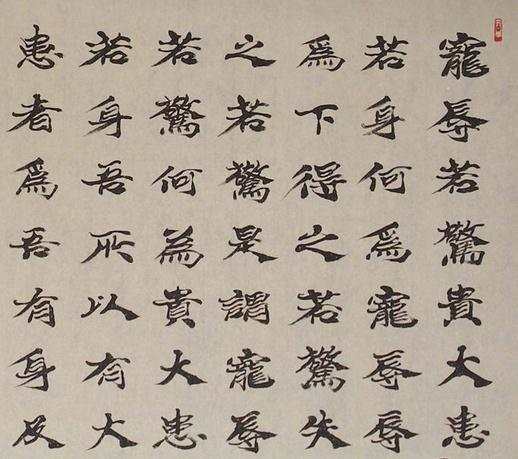 寵辱若驚貴大患
若身何為寵辱辱
為下得之若驚失
之若驚是謂寵辱
若驚何為貴大患
若身吾所以有大
患者為吾有身及